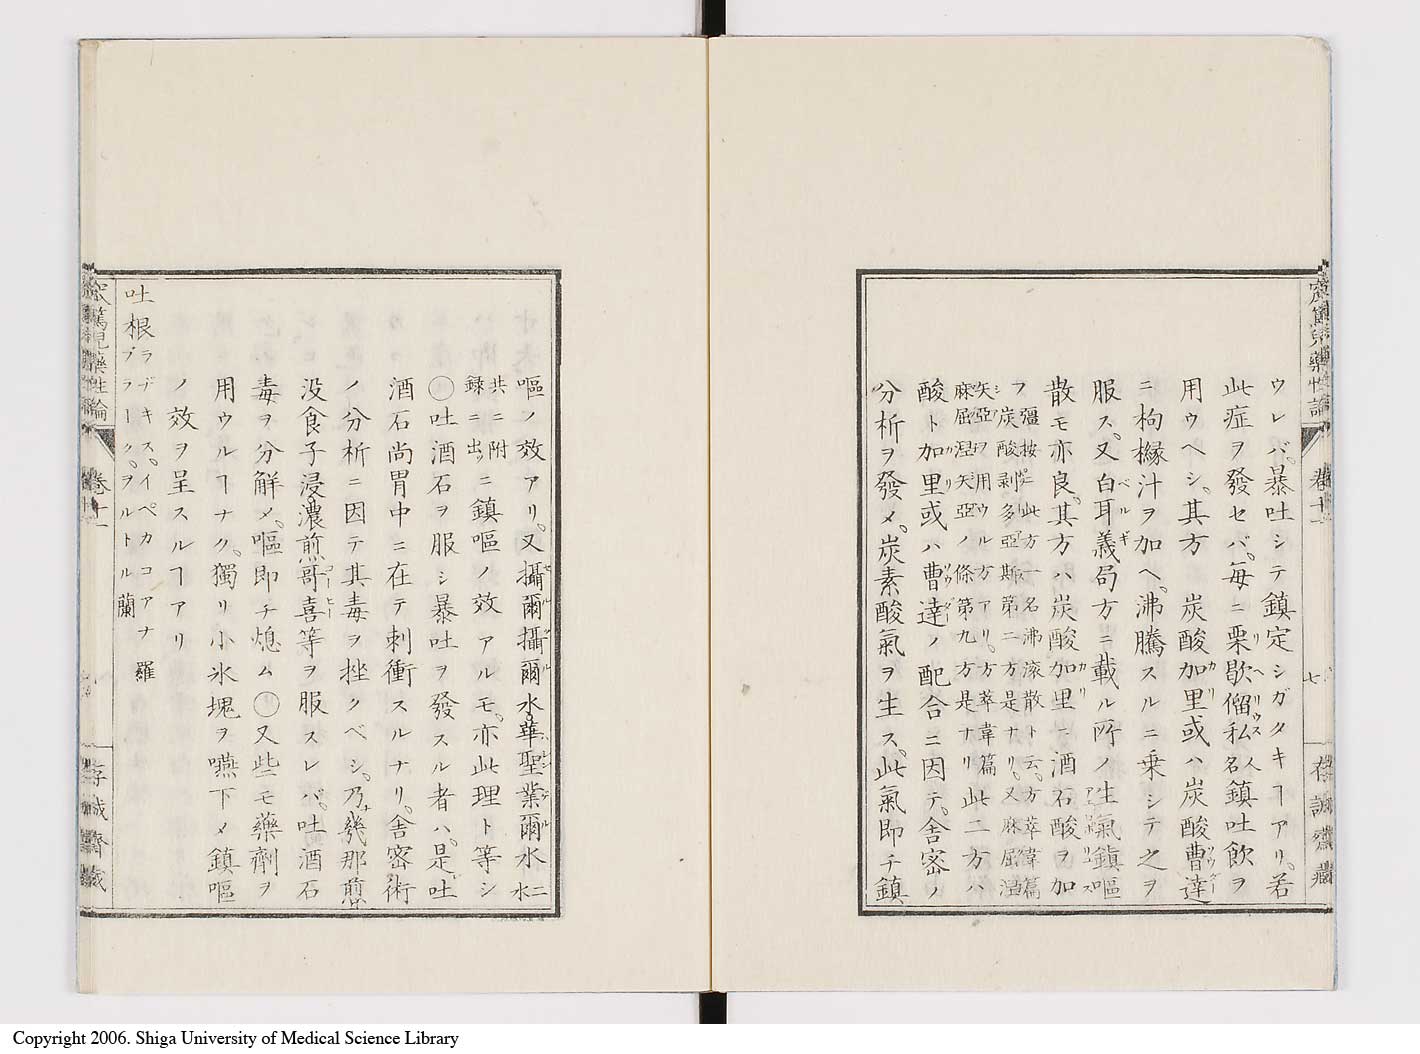 ウレバ、暴吐シテ鎮定シガタキヿアリ。若
此症ヲ發セバ、毎ニ栗歇僱私人名鎮吐飲ヲ
リヘリウス
用ウヘシ。其方 炭酸加里或ハ炭酸曹達
カリ ソウダー
ニ枸櫞汁ヲ加ヘ、沸騰スルニ乗シテ之ヲ
服ス。又白耳義局方ニ載ル所ノ生氣鎮嘔
ベルギ
散モ亦良。其方ハ炭酸加里ニ酒石酸ヲ加
カリ
フ彊按ニ此方一名沸滾散ト云。方萃葦篇
シ炭酸剥多亞斯第二方是ナリ。又麻屈涅
矢亞ヲ用ウル方アリ。方萃葦篇
麻屈涅矢亞ノ條第九方是ナリ此二方ハ
酸ト加里或ハ曹達ノ配合ニ因テ、舎密ノ
カリ ソウダー
分析ヲ發メ、炭素酸氣ヲ生ス。此氣即チ鎮
巻十一
七
存誠齋藏
嘔ノ效アリ。又攝爾攝爾水華聖業爾水二水
セルゼル
共ニ附
録ニ出ッニ鎮嘔ノ效アルモ、亦此理ト等シ
〇吐酒石ヲ服シ暴吐ヲ發スル者ハ、是吐
酒石尚胃中ニ在テ刺衝スルナリ。舎密術
ノ分析ニ因テ其毒ヲ挫クベシ。乃幾那煎
没食子浸濃煎哥喜等ヲ服スレバ、吐酒石
コーヒー
毒ヲ分解メ、嘔即チ熄ム〇又些モ藥劑ヲ
用ウルヿナク、獨リ小氷塊ヲ嚥下メ鎮嘔
ノ效ヲ呈スルヿアリ
吐根ラヂキス、イペカコアナ 羅
ブラーク、ヲルトル 蘭
窊篤児藥性論
巻十一
存誠齋藏
Copyright 2006. Shiga University of Medical Science Library